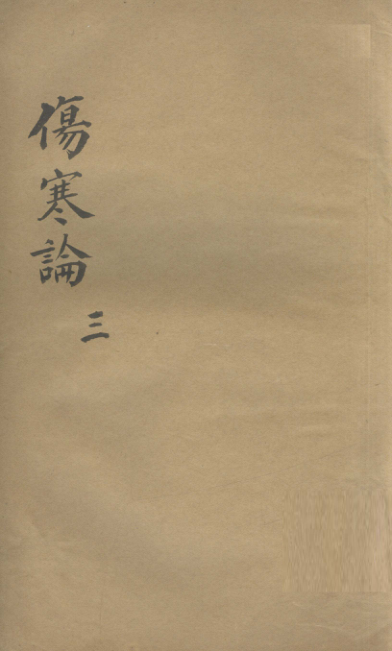 傷寒論
三